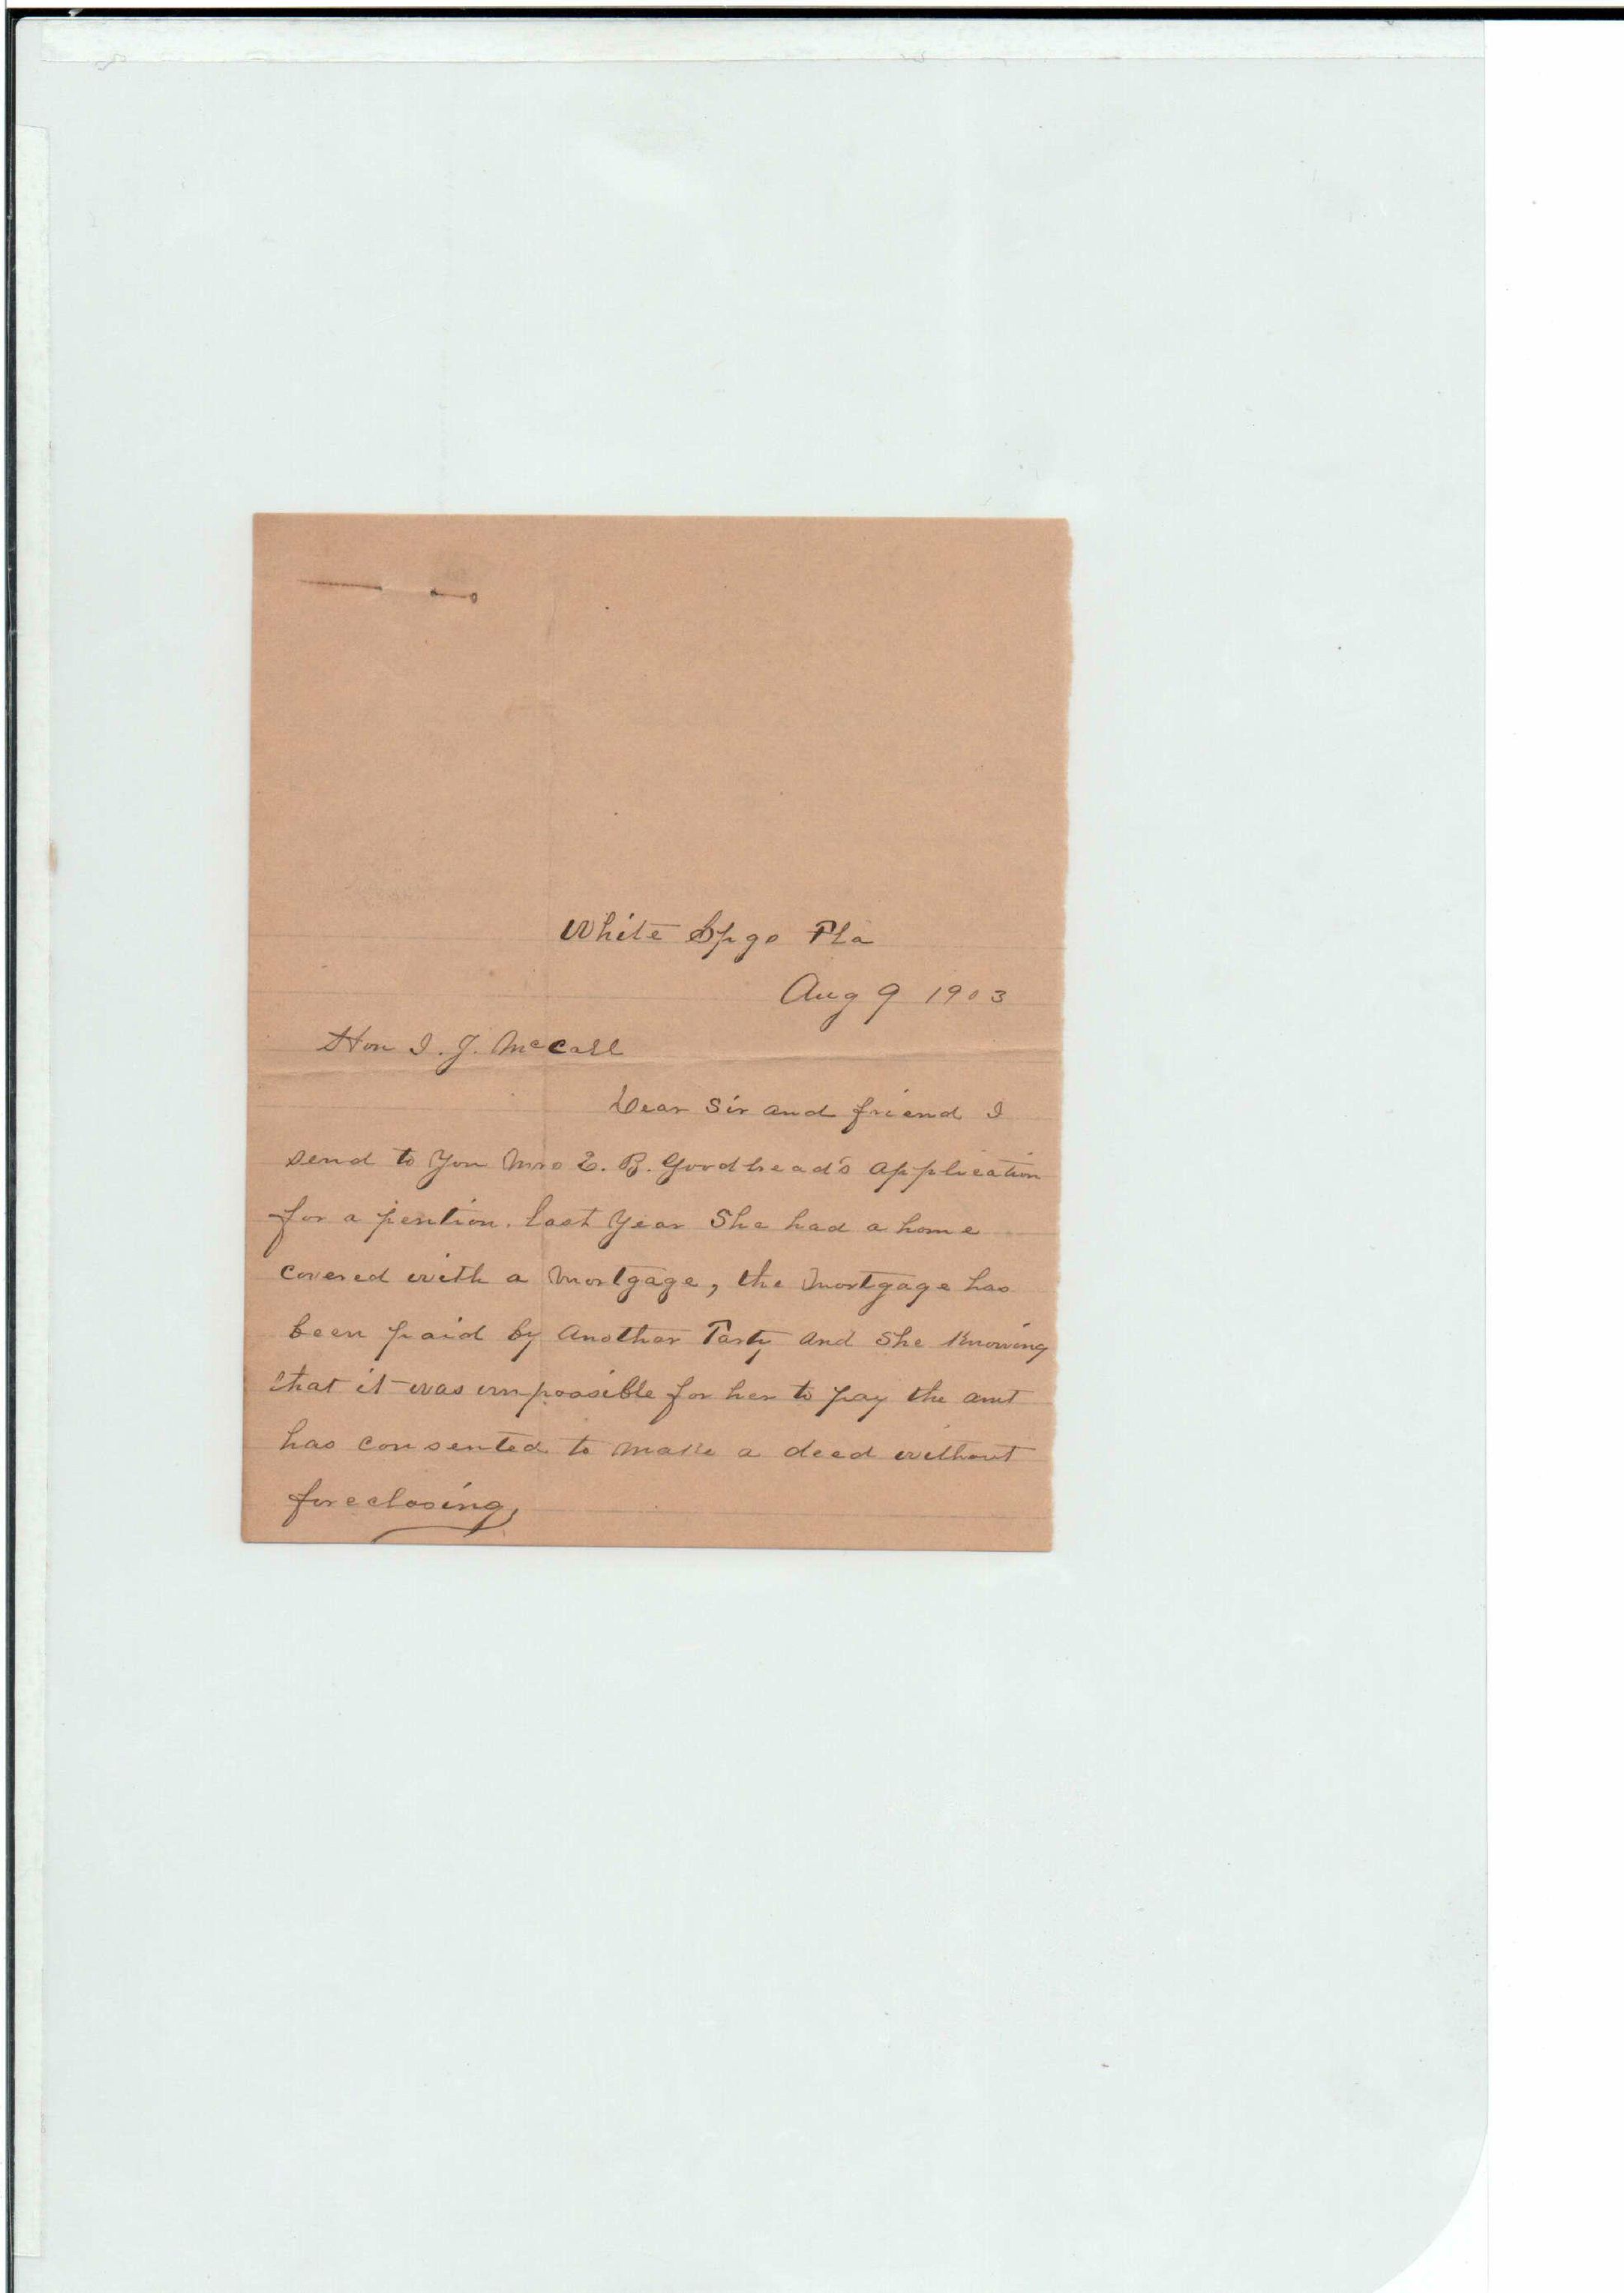 White Spgs Fla
Aug 9 1903
Hon I. J. McCall
Dear Sir and friend I
send to You Mrs E. B. Goodbread's application
for a pention. last Year She had a home
covered with a Mortgage, the Mortgage has
been paid by Another Party and She Knowing
that it was impossible for her to pay the amt
has consented to make a deed without
foreclosing,